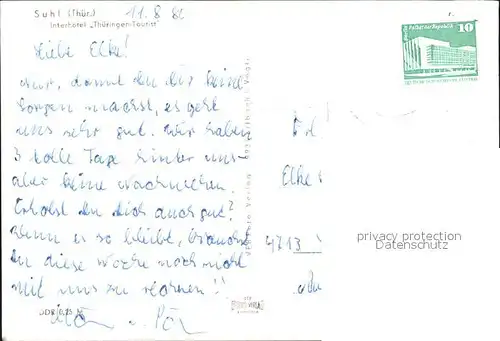 Suhl (Thür.)
Interhotel „Thüringen-Tourist"
11.8.80
Palast der Republik
10
Liebe Elke!
Nur, damit Du Dir keine
Sorgen machst, es geht
uns sehr gut. Wir haben
3 tolle Tage hinter uns
aber keine Nachrichten.
Erholst Du Dich auch gut?
Wenn es so bleibt, brauchst
Du diese Woche noch nicht
mit uns zu rechnen!!
Elke
4713
privacy protection
Datenschutz
DDR 0,25 M